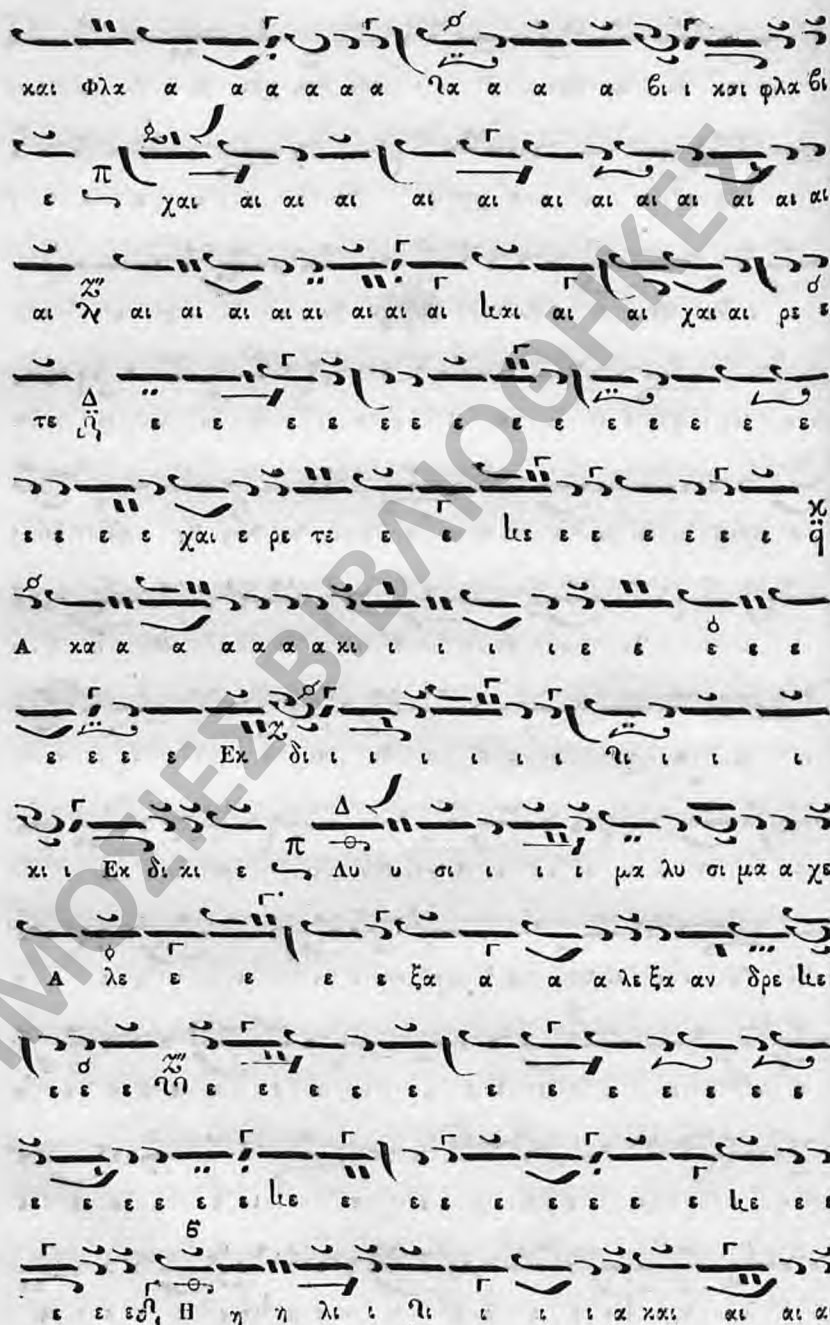 και Φλα α α α α α α α α α βι ι και φλα βι
ε π χαι αι αι αι αι αι αι αι αι αι αι αι αι
αι αι αι αι αι αι αι αι αι αι αι χαι αι ρε ε
τε Δ ε ε ε ε ε ε ε ε ε ε ε ε ε ε ε
ε ε ε ε χαι ε ρε τε ε ε ε ε ε ε ε ε
Α κα α α α α α α κι ι ι ι ι ε ε ε ε ε
ε ε ε ε Εκ δι ι ι ι ι ι ι ι ι
κι ι Εκ δι κι ε π Δ Λυ υ σι ι ι ι μα λυ σι μα α χε
Α λε ε ε ε ε ξα α α α λε ξα αν δρε
ε ε ε ε ε ε ε ε ε ε ε ε ε ε ε
ε ε ε ε ε ε ε ε ε ε ε ε ε ε ε ε ε
ε ε ε Η η η λι ι ι ι ι ι α και αι αι α
ΜΟΣΙΕΣ ΒΙΒΛΙΟΘΗΚΕΣ